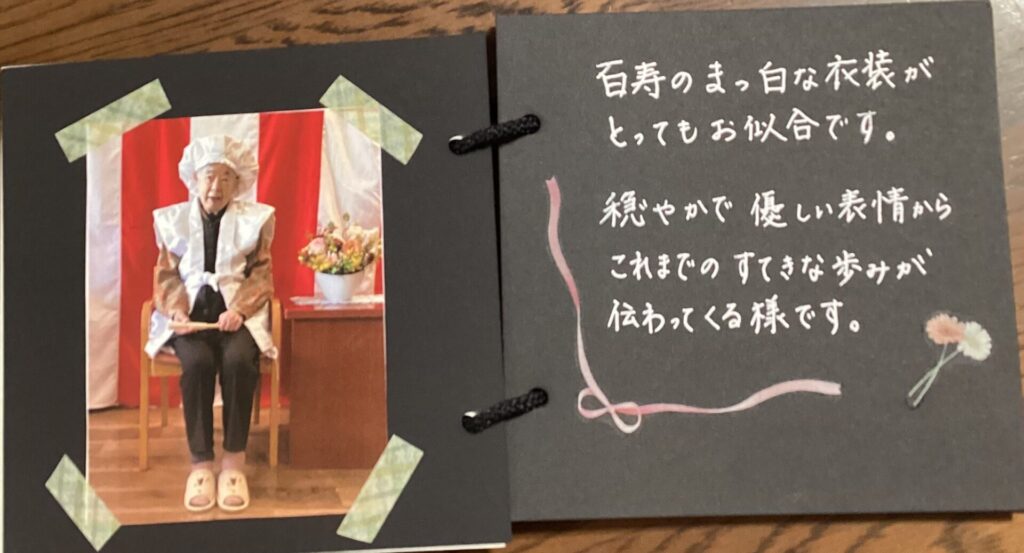 百寿のまっ白な衣装が
とってもお似合です。
穏やかで優しい表情から
これまでのすてきな歩みが
伝わってくる様です。